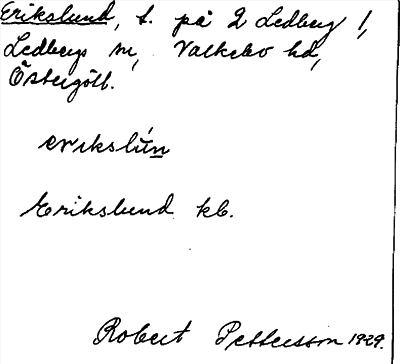 Erikslund, t. på 2 Ledberg 1,
Ledbergs sn, Valkebo hd,
Östergötl.
erikslún
Erikslund kb.
Robert Pettersson 1929.